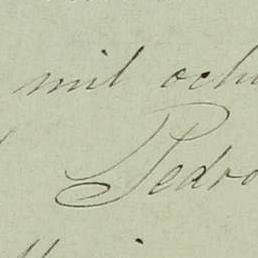 mil och
Pedro